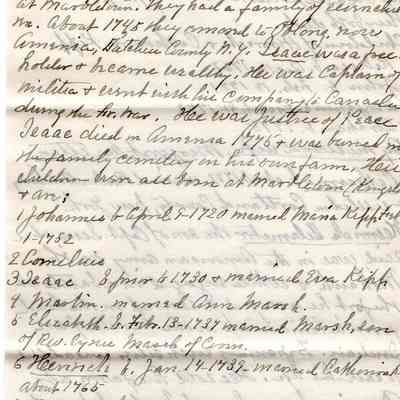 at Marbletown. They had a family of
About 1745 they moved to Oblong, now
Amenia, Dutchess County N.Y. Isaac was a free
holder & became wealthy. He was Captain of
militia & went with his Company to Canada
during the Fr. War. He was Justice of Peace
Isaac died in Amenia 1775 & was buried in
the family cemetery on his own farm. Their
children were all born at Marbletown
& are:
1 Johannes b April 9-1720 married Maria Kipp Feb
1-1752
2 Cornelius
3 Isaac b prior to 1730 & married Eva Kipp
4 Martin. married Ann Marsh.
5 Elizabeth b. Feb. 13-1737 married Marsh, son
of Rev. Cyrus Marsh of Conn.
6 Henrich b. Jan. 14-1739- married Catherina
about 1765